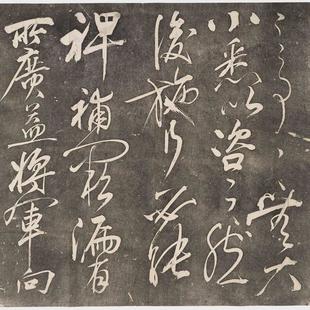 之事事無大
小悉以咨之然
後施行必能
裨補闕漏有
所廣益將軍向